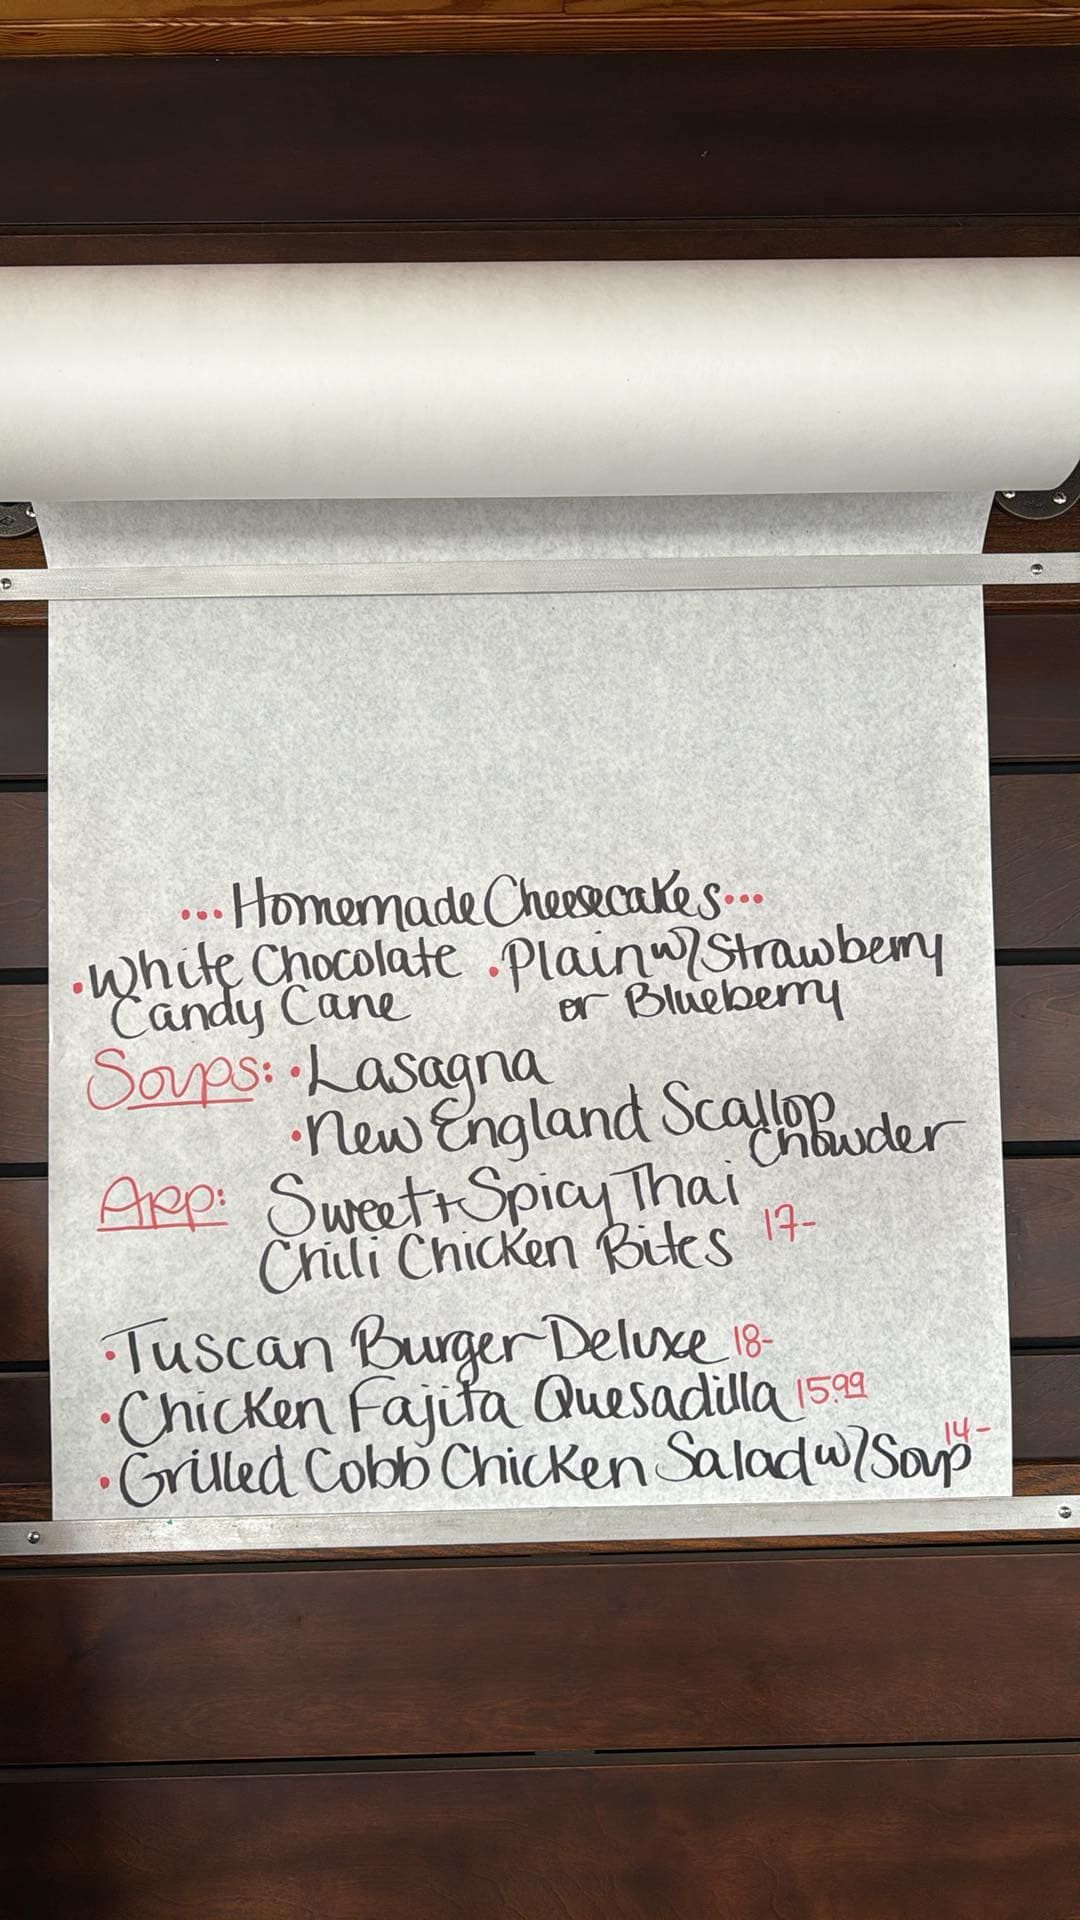 ...Homemade Cheesecakes...
•White Chocolate •Plain w/Strawberry
Candy Cane or Blueberry
Soups: •Lasagna
•New England Scallop
Chowder
App: Sweet + Spicy Thai
Chili Chicken Bites 17-
•Tuscan Burger Deluxe 18-
•Chicken Fajita Quesadilla 15.99
•Grilled Cobb Chicken Salad w/Soup 14-